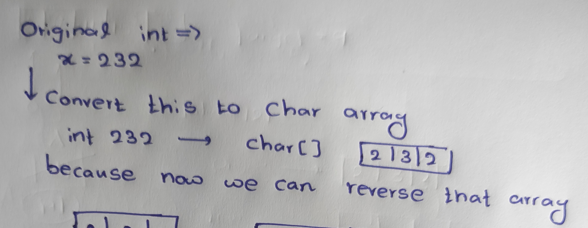 Original int =>
x = 232
Convert this to Char array
int 232 → char[] 2|3|2
because now we can reverse that array